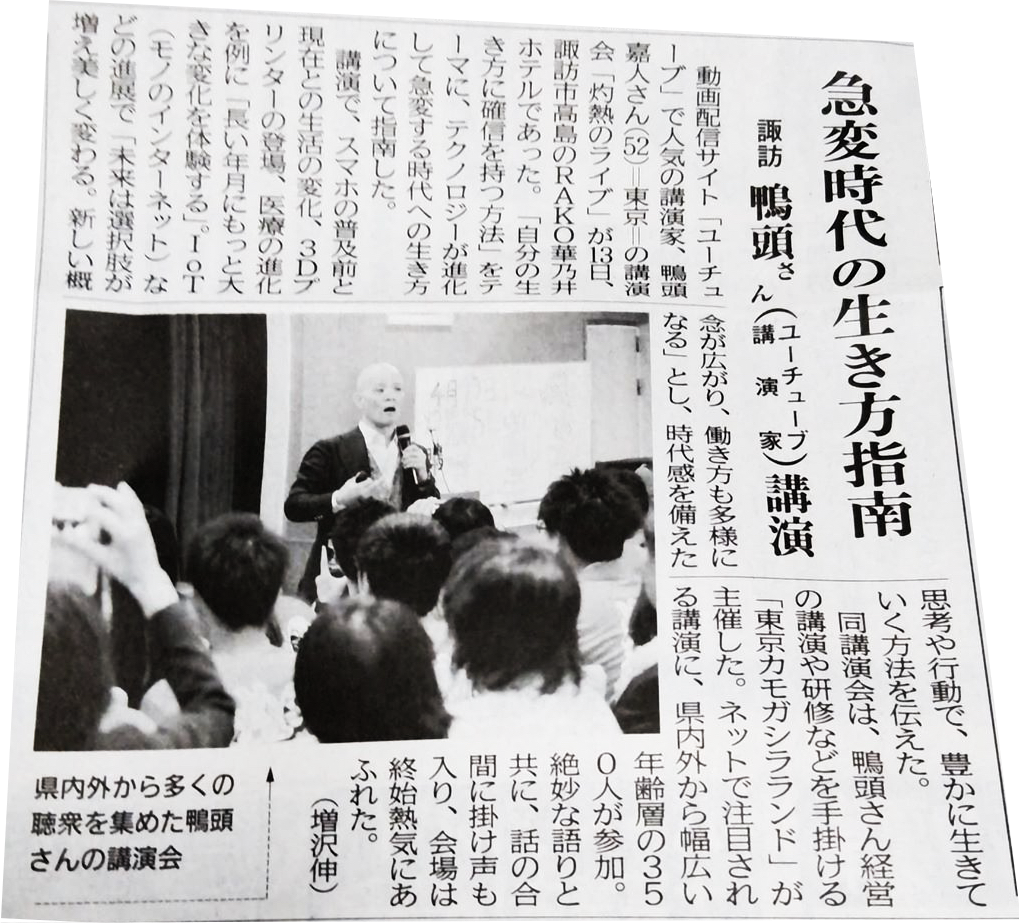 急変時代の生き方指南
諏訪 鴨頭さん(ユーチューブ講演家)講演
動画配信サイト「ユーチュ
ーブ」で人気の講演家、鴨頭
嘉人さん(52)＝東京＝の講演
会「灼熱のライブ」が13日、
諏訪市高島のRAKO華乃井
ホテルであった。「自分の生
き方に確信を持つ方法」をテ
ーマに、テクノロジーが進化
して急変する時代への生き方
について指南した。
講演で、スマホの普及前と
現在との生活の変化、3Dプ
リンターの登場、医療の進化
を例に「長い年月にもっと大
きな変化を体験する」。IoT
(モノのインターネット)な
どの進展で「未来は選択肢が
増え美しく変わる。新しい概
念が広がり、働き方も多様に
なる」とし、時代感を備えた
思考や行動で、豊かに生きて
いく方法を伝えた。
同講演会は、鴨頭さん経営
の講演や研修などを手掛ける
「東京カモガシラランド」が
主催した。ネットで注目され
る講演に、県内外から幅広い
年齢層の35
0人が参加。
絶妙な語りと
共に、話の合
間に掛け声も
入り、会場は
終始熱気にあ
ふれた。
(増沢伸)
県内外から多くの
聴衆を集めた鴨頭
さんの講演会